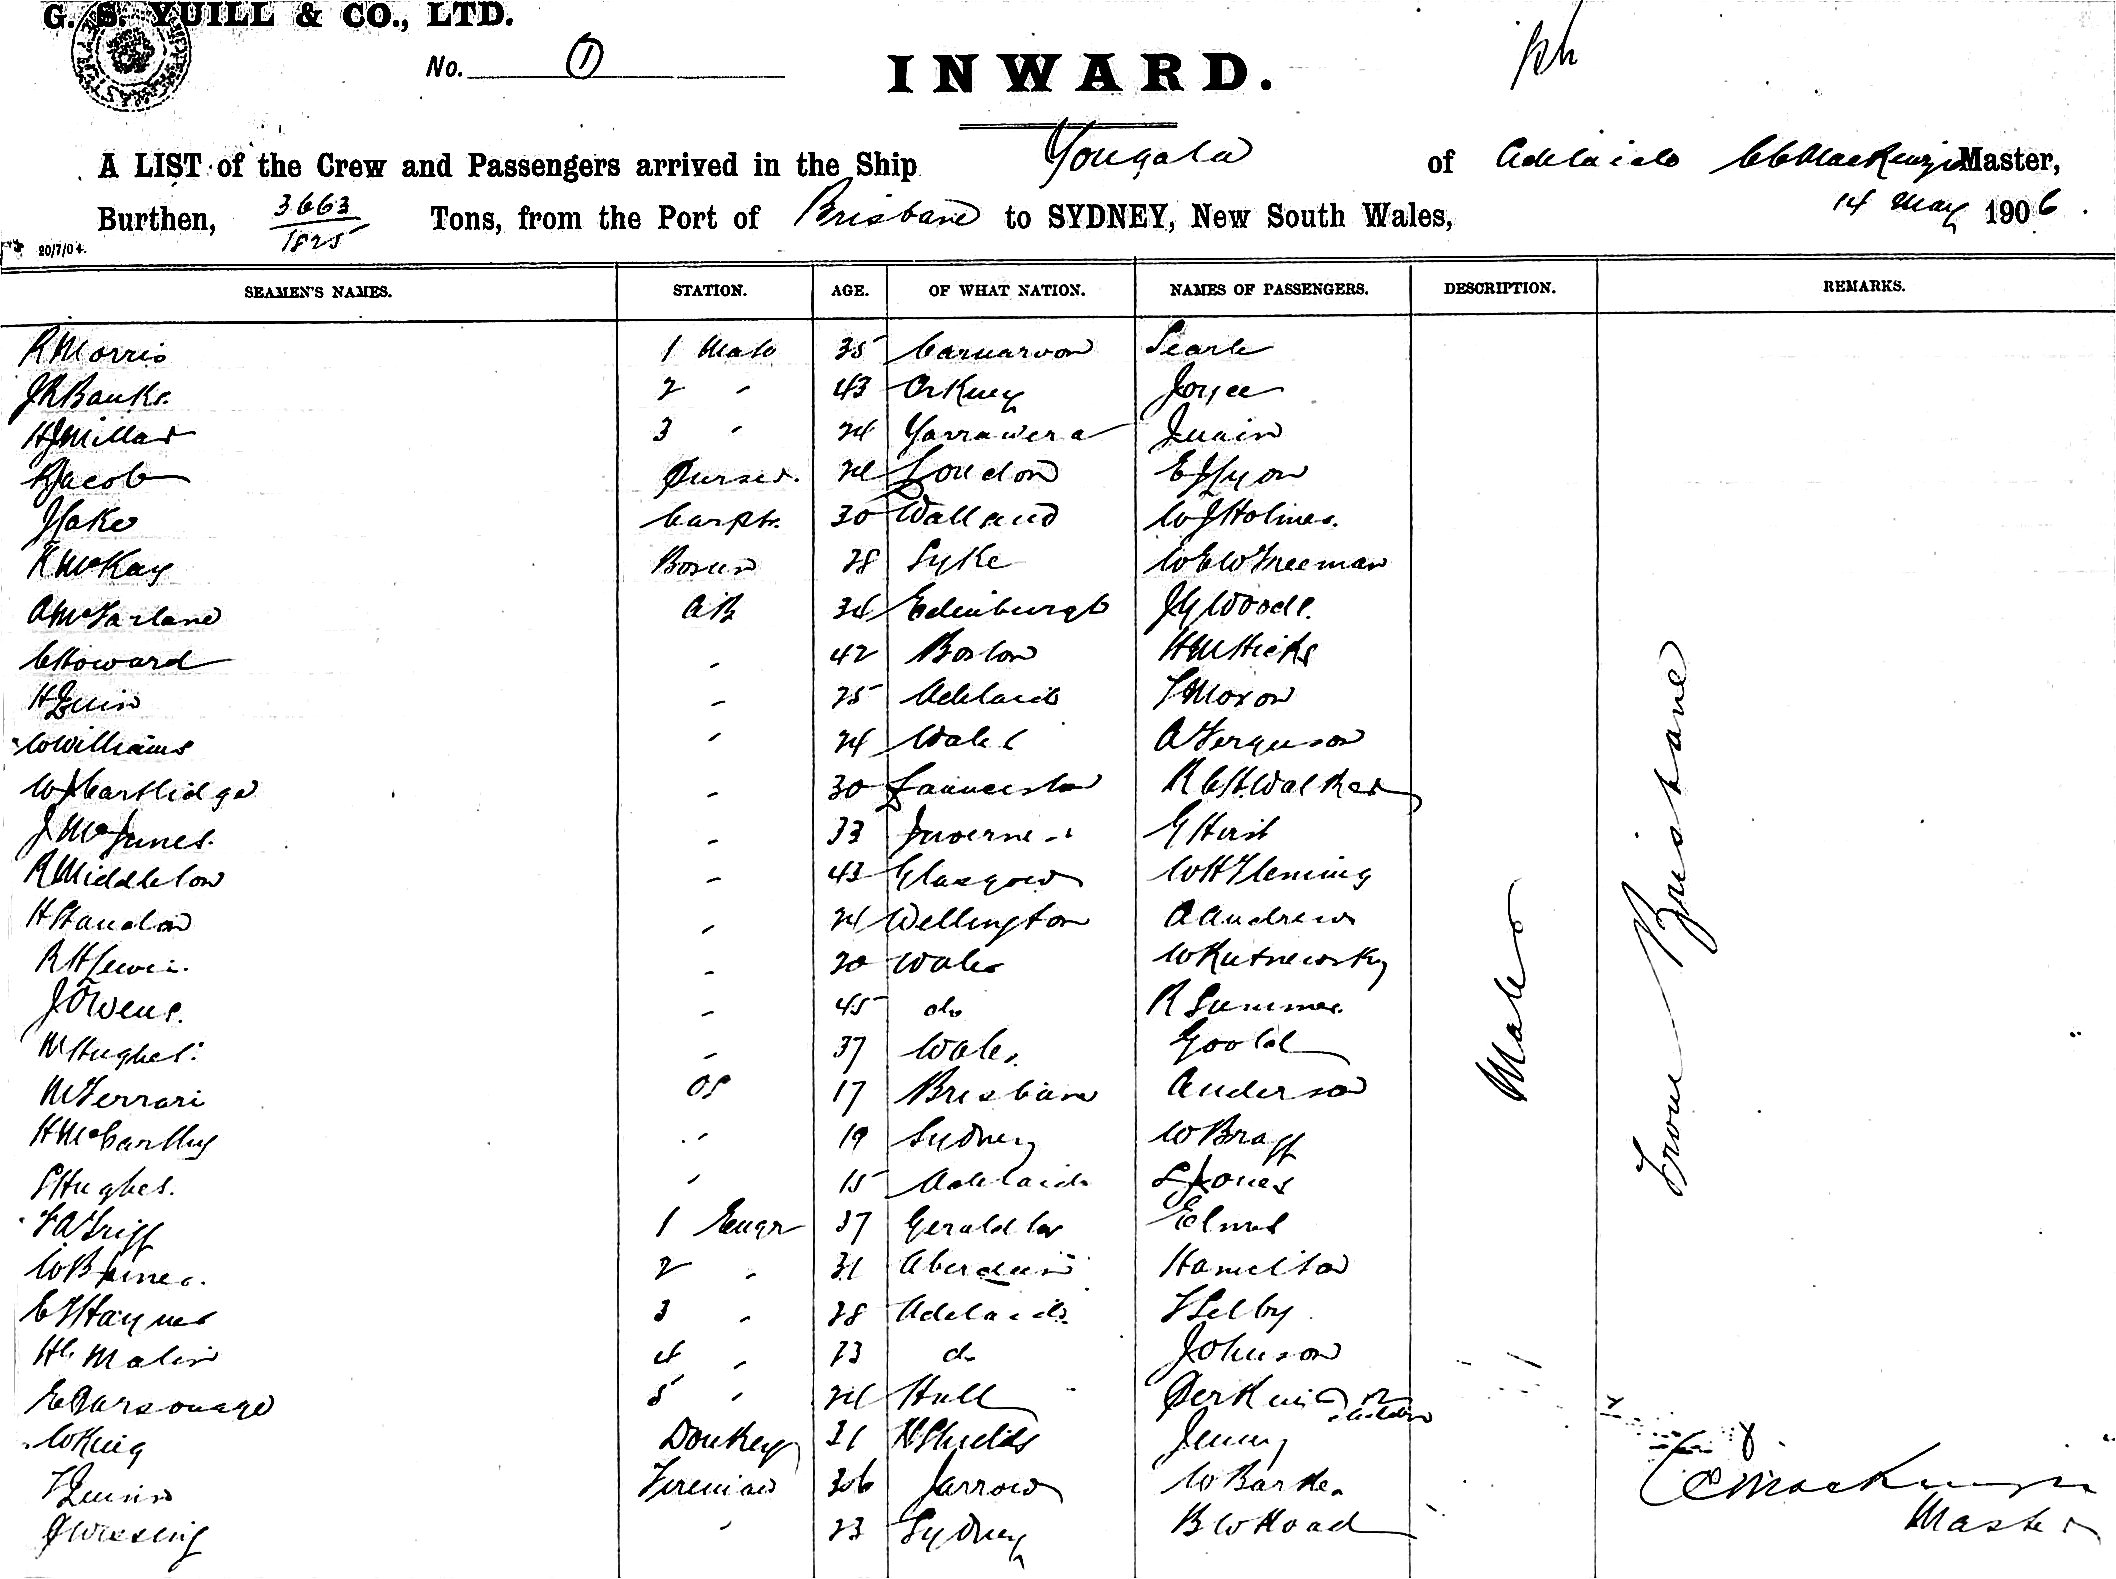 G. S. YUILL & CO., LTD.
No. 1
INWARD.
A LIST of the Crew and Passengers arrived in the Ship Yongala of Adelaide CC MacKenzie Master,
Burthen, 3663/1825 Tons, from the Port of Brisbane to SYDNEY, New South Wales, 14 May 1906.
20/7/04.
SEAMEN'S NAMES. STATION. AGE. OF WHAT NATION. NAMES OF PASSENGERS. DESCRIPTION. REMARKS.
R Morris 1 Mate 35 Carnarvon Searle
J R Banks. 2 " 43 Orkney Joyce
H J Millar 3 " 24 Yarrawera
Jacob Purser. 24 London E J Lyon
J Cake Carptr. 30 W J Holmes.
R McKay Bosun 28 Syke W E W Freeman
A McFarlane AB 34 Edinburgh J G Woods.
C Howard " 42 Boston H M Hicks
H Quin " 25 Adelaide F Moxon
W Williams " 24 Wales A Ferguson
W J Cartlidge " 30 Launceston R C H Walker
J McInnes. " 33 Inverness G Hirst
R Middleton " 43 Glasgow W H Fleming
H Standon " 24 Wellington A Andrews
R H Lewis. " 20 Wales W Kutnewsky
J Owens. " 45 do R Summer
W Hughes. " 37 Wales. Goold
M Ferrari OS 17 Brisbane Anderson
H McCarthy " 19 Sydney W Bragg
S Hughes. " 15 Adelaide S Jones
F A Griff 1 Engr 37 Geraldton Elms
W B 2 " 31 Aberdeen Hamilton
E F Haynes 3 " 28 Adelaide. F Selby
H C Malin 4 " 23 do Johnson
E Parsonage 5 " 24 Hull Perkins 2 children
W King Donkey 31 N Shields Jenny
F Quinn Fireman 36 Jarrow W Barke
J Wessing " 23 Sydney B W Hoad
Males
From Brisbane
CC MacKenzie
Master